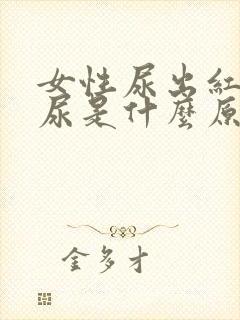 女性尿出紅
尿是什麼原
金多才